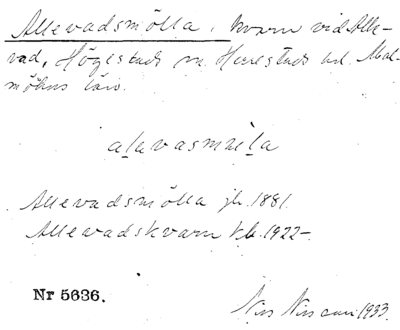 Allevadsmölla, kvarn vid Alle-
vad, Högestads sn. Herrestads hd. Mal-
möhus län.
alavasmøla
Allevadsmölla jb. 1881.
Allevadskvarn kb. 1922–
Nr 5636.
Nils Nilsson 1933.